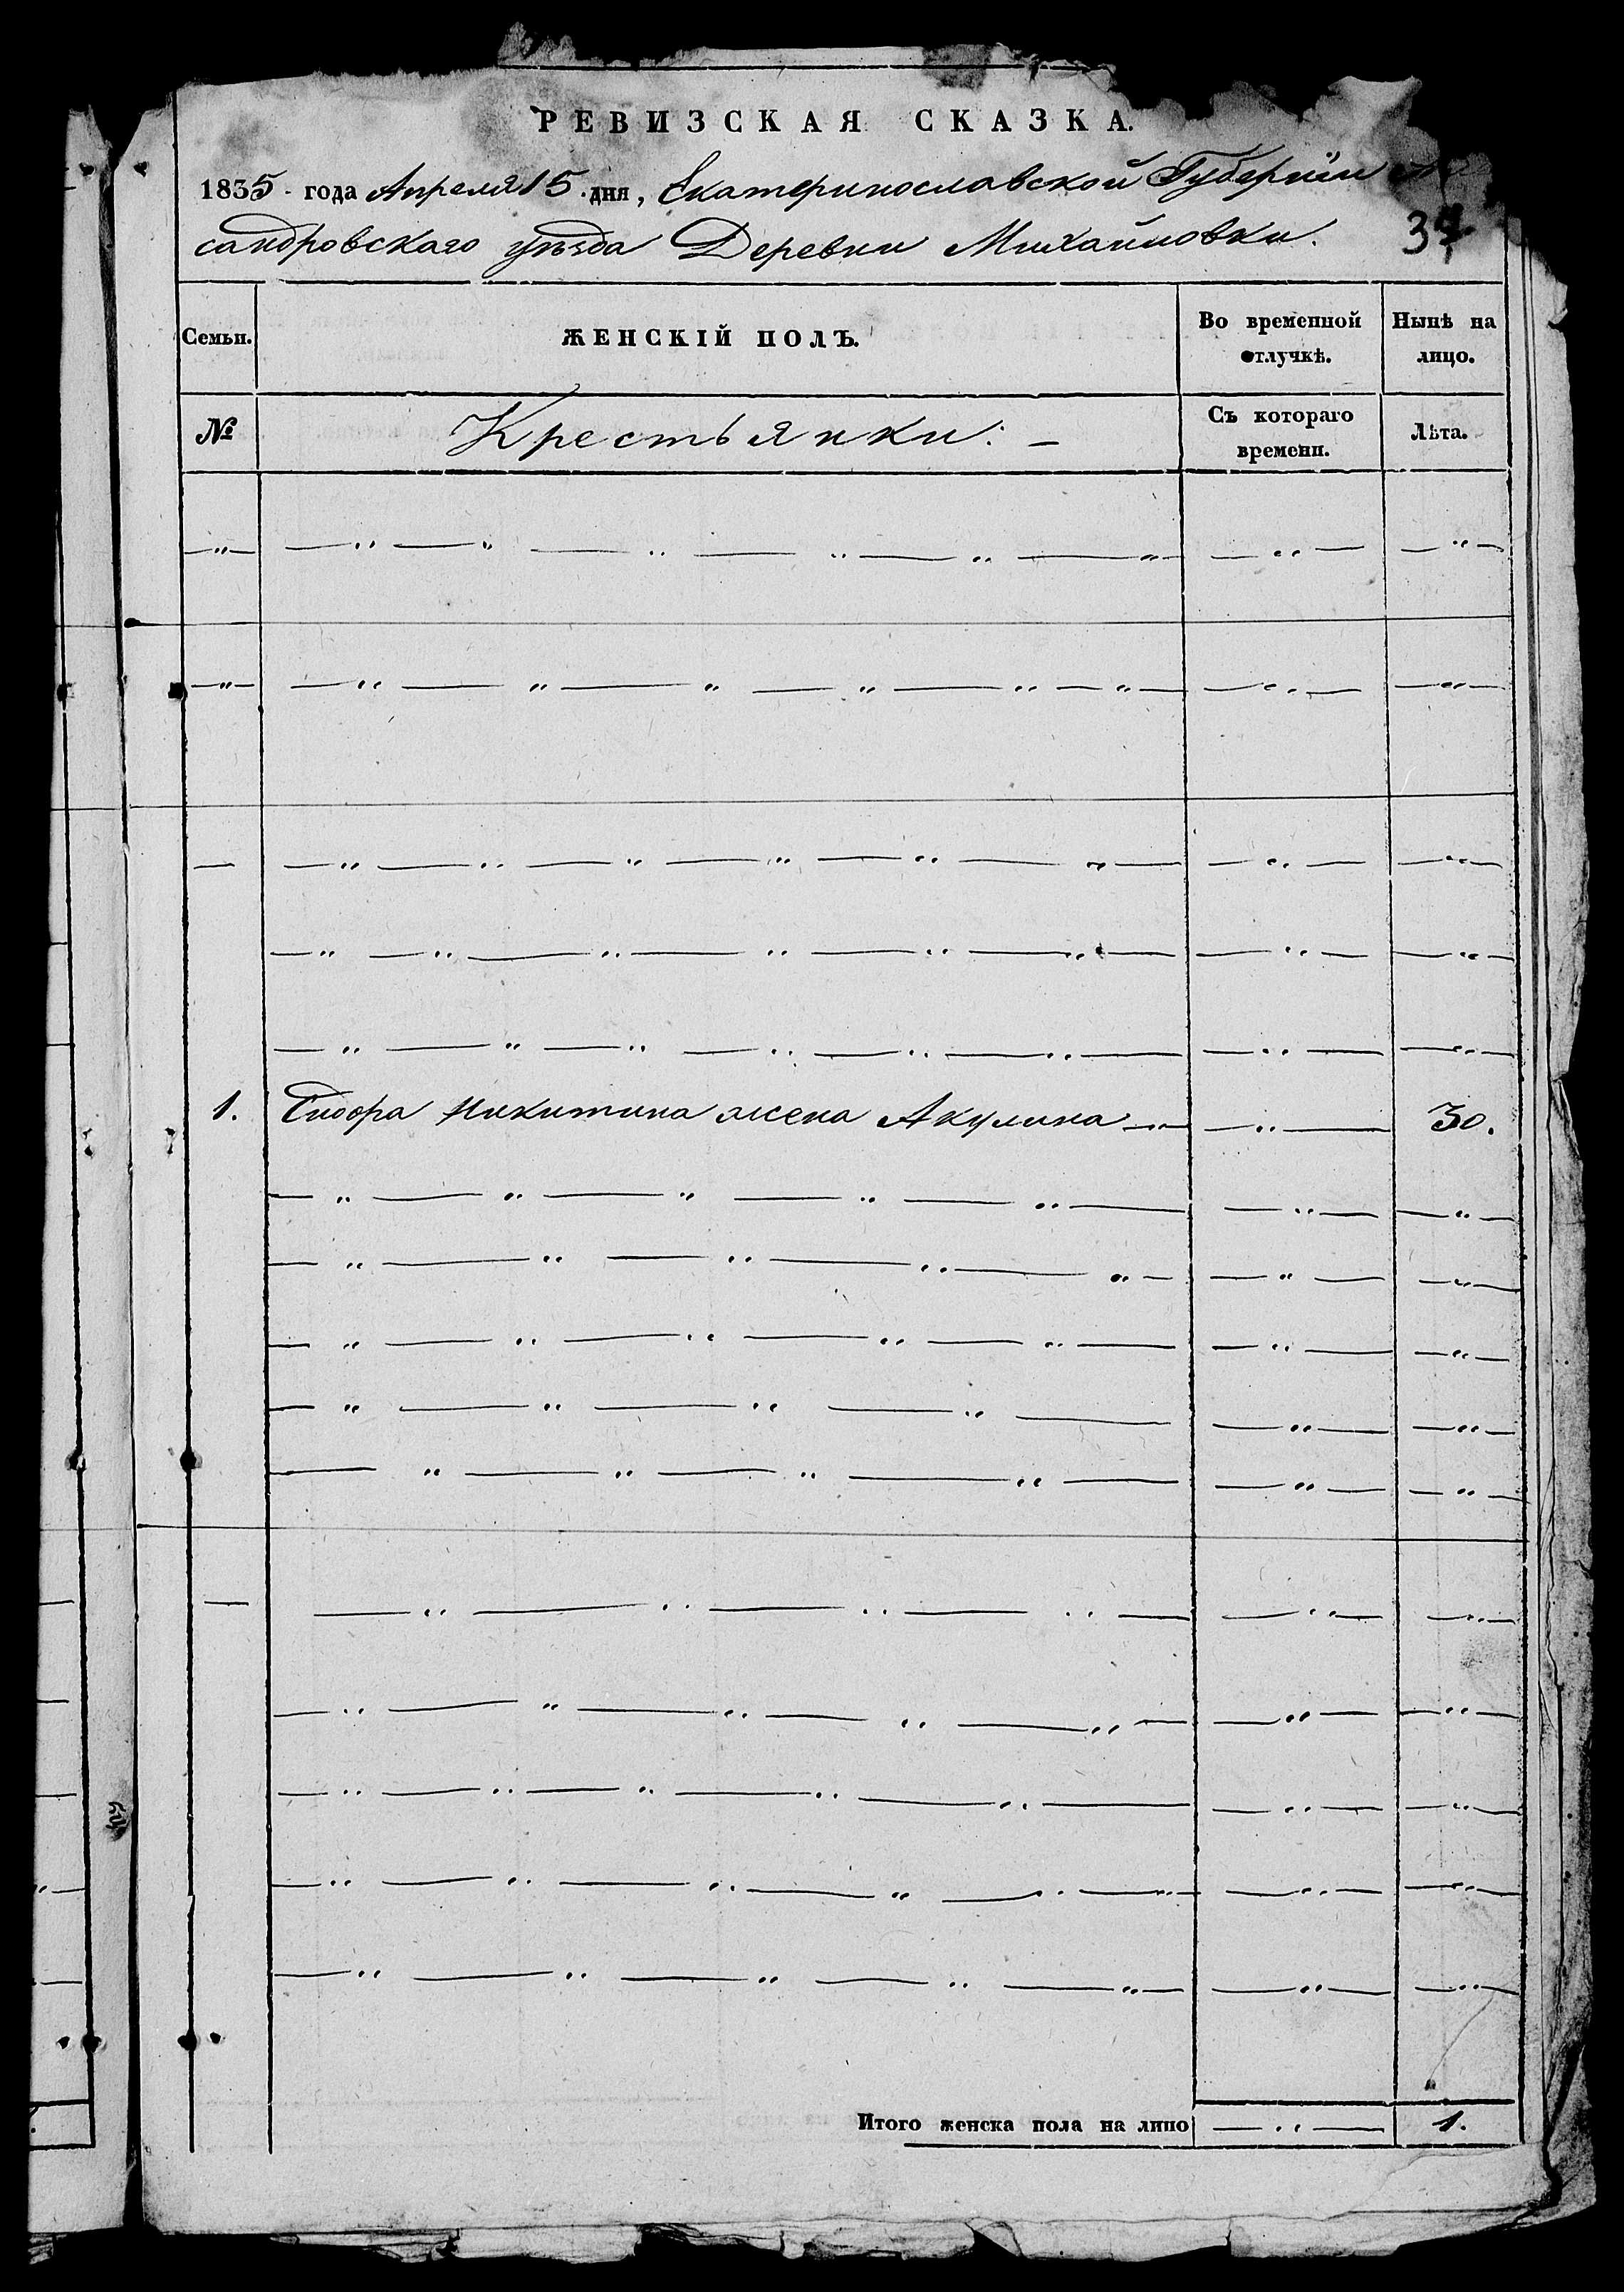 РЕВИЗСКАЯ СКАЗКА.
1835 года Апреля 15 дня, Екатеринославской Губернии
сандровскаго уѣзда Деревни Михайловки. 37
Семьи. ЖЕНСКІЙ ПОЛЪ. Во временной отлучкѣ. Нынѣ на лицо.
№ Крестьянки: — Съ котораго времени. Лѣта.
1. Сидора Никитина жена Акулина — " — — " — 30.
Итого женска пола на лицо — " — 1.